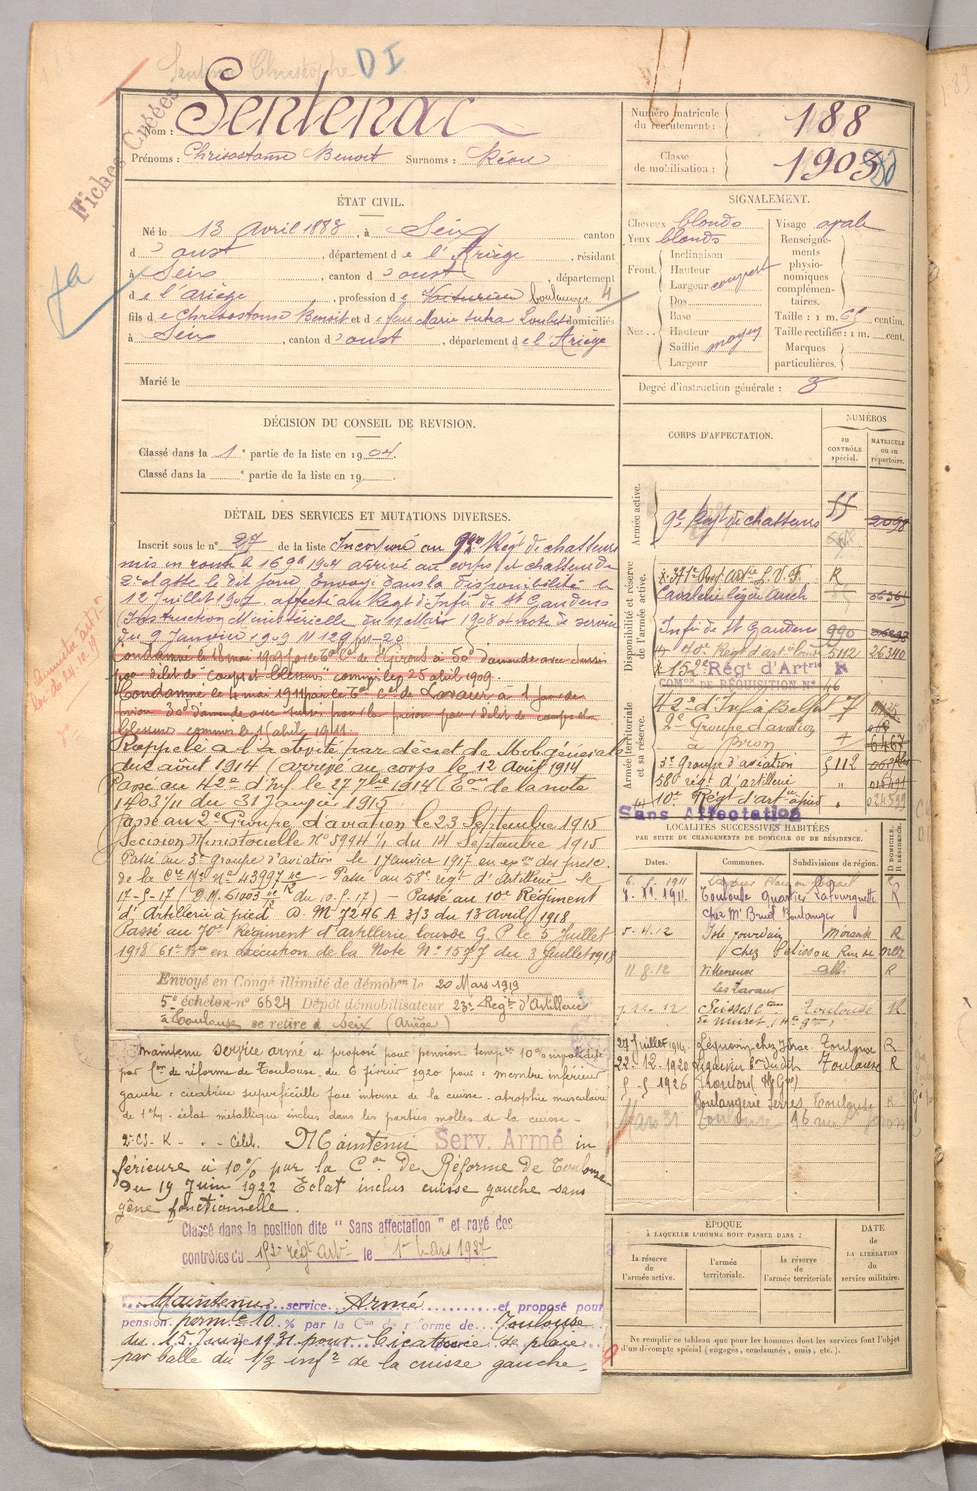 DI
Fiches Créées
Nom : Sentenac
Prénoms : Chrisostome Benoit Surnoms : Réou
Numéro matricule
du recrutement : 188
Classe
de mobilisation : 1903
ÉTAT CIVIL.
Né le 13 avril 1883, à Seix canton
d'oust, département de l'Ariège, résidant
à Seix, canton d'oust, département
de l'ariège, profession de Voiturier boulanger 4
fils de Chrisostome Benoit et de domiciliés
à Seix, canton d'oust, département de l'Ariège
Marié le
SIGNALEMENT.
Cheveux blonds Visage ovale
Yeux blonds
Front. Inclinaison
Hauteur
Largeur
Nez. Dos
Base
Hauteur
Saillie moyen
Largeur
Renseignements physionomiques complémentaires.
Taille : 1 m. 65 centim.
Taille rectifiée : 1 m. cent.
Marques
particulières.
Degré d'instruction générale : 3
DÉCISION DU CONSEIL DE REVISION.
Classé dans la 1e partie de la liste en 1904.
Classé dans la e partie de la liste en 19
DÉTAIL DES SERVICES ET MUTATIONS DIVERSES.
Inscrit sous le n° 27 de la liste Incorporé au 9eme Régt de chasseurs
mis en route le 16 9bre 1904 arrivé au corps et chasseur de
2e classe le dit jour. Envoyé dans la disponibilité le
12 Juillet 1907 affecté au Régt d'Infie de St Gaudens
(Instruction Ministérielle du 11 Mars 1908 et note de service
du 9 Janvier 1909 N 129
Condamné le 18 mai 1909 par le Bal de St Girons à 50f d'amende avec sursis
pour délit de coups et blessures commis le 25 avril 1909.
Condamné le 4 mai 1911 par le Bal cel de Lavaur à 1 jour de
prison 30f d'amende avec sursis pour la prison pour délit de coups et
blessures commis le 1 avril 1911
Rappelé à l'activité par décret de Mobon générale
du 1 août 1914 (arrivé au corps le 12 Août 1914
Passé au 42e d'Inf le 27 7bre 1914 (Eon de la note
1403/11 du 31 Janvier 1915
Passé au 2e Groupe d'aviation le 23 Septembre 1915
Décision Ministerielle N° 5994/4 du 14 Septembre 1915
Passé au 3e groupe d'aviation le 1 Janvier 1917 en exon des presc.
de la Cre Mle N° 43997 - Passé au 58e régt d'Artillerie le
17-5-17 (D.M. 61003 du 10-5-17) - Passé au 10e Régiment
d'Artillerie à pied D. M 7246 A 3/3 du 13 avril 1918
Passé au 70e Régiment d'artillerie lourde G P le 5 Juillet
1918 61e Bie en exécution de la Note N° 1577 du 3 Juillet 1918
Envoyé en Congé illimité de démobon le 20 Mars 1919
5e échelon n° 6624 Dépôt démobilisateur 23e Régt d'Artillerie
à Toulouse se retire à Seix (Ariège)
Maintenu service armé et proposé pour pension tempre 10% invalidité
par Con de réforme de Toulouse du 6 février 1920 pour : membre inférieur
gauche : cicatrice superficielle face interne de la cuisse - atrophie musculaire
de 1c½ - éclat métallique inclus dans les parties molles de la cuisse -
Maintenu Serv. Armé in
férieure à 10% par la Con de Réforme de Toulouse
du 19 Juin 1922 Eclat inclus cuisse gauche sans
gêne fonctionnelle.
Classé dans la position dite "Sans affectation" et rayé des
contrôles du 152e régt arti le 1er Mars 1927
Maintenu service Armé et proposé pour
pension permte 10 % par la Con de réforme de Toulouse
du 15 Juin 1931 pour Cicatrice de plaie
par balle du 1/3 infr de la cuisse gauche.
CORPS D'AFFECTATION.
NUMÉROS
au
CONTRÔLE
spécial.
MATRICULE
ou au
répertoire.
Armée active.
9e Régt de chasseurs
2098
Disponibilité et réserve
de l'armée active.
371e Régt artie L. V. F. R
Cavalerie légère Auch
Infie de St Gaudens 990
70e Régt d'artie lourde 5112 26340
152e Régt d'Artrie R
COMon DE RÉQUISITION N° 46
Armée territoriale
et sa réserve.
42e d'Inf à Belfort 7
2e Groupe d'aviation
à Bron
3e Groupe d'aviation 5112
58e régt d'artillerie
10e Régt d'artie à pied
Sans Affectation
LOCALITÉS SUCCESSIVES HABITÉES
PAR SUITE DE CHANGEMENTS DE DOMICILE OU DE RÉSIDENCE.
Dates. Communes. Subdivisions de région. D DOMICILE. R RÉSIDENCE.
11. 1911. Toulouse Quartier Lafourguette R
chez Mr Bruel Boulanger
5-4.12 Isle Jourdain Mirande R
chez Pelisson Rue de
11.8.12 Villeneuve albi R
les Lavaur
Seysses Toulouse R
de Muret
27 Juillet 1914 Léguevin chez Toulouse R
22.12.1920 Léguevin Toulouse R
1926
Boulangerie Serres Toulouse R
Mars 31 Toulouse 16 rue
ÉPOQUE
À LAQUELLE L'HOMME DOIT PASSER DANS :
la réserve
de
l'armée active.
l'armée
territoriale.
la réserve
de
l'armée territoriale
DATE
de
LA LIBÉRATION
du
service militaire.
Ne remplir ce tableau que pour les hommes dont les services font l'objet
d'un décompte spécial (engagés, condamnés, omis, etc.).